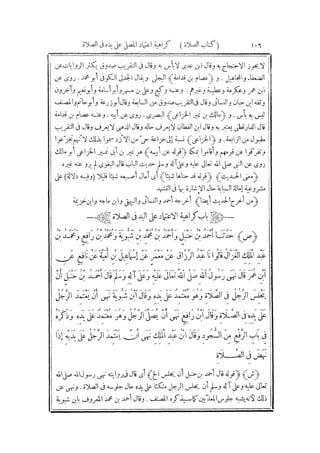 ١٠٦ (كتاب الصلاة) كراهية اعتماد المصلى على يده فى الصلاة
لا يجوز الاحتجاج به وقال ابن عدى لا بأس به وقال فى التقريب صدوق يكثر الرواية عن
الضعفاء والمجاهيل و (عصام بن قدامة) البجلى ويقال الجدلى الكوفى أبو محمد. روى عن
ابن عمر وعكرمة وعطية وغيرهم. وعنه وكيع وعلى بن مسهر وأبو أسامة وأبو نعيم وآخرون
وثقه ابن حبان والنسائى وقال فى التقريب صدوق من السابعة وقال أبو زرعة وأبو حاتم والمصنف
ليس به بأس. و (مالك بن نمير الخزاعى) البصرى. روى عن أبيه. وعنه عصام بن قدامة
قال الدارقطنى يعتبر به وقال ابن القطان لا يعرف حاله وقال الذهبى لا يعرف وقال فى التقريب
مقبول من الرابعة. و (الخزاعى) نسبة إلى خزاعة حى من الأزد سموا بذلك لأنهم تخزعوا
وتفرقوا عن قومهم وأقاموا بمكة (قوله عن أبيه) هو نمير بن أبى نمير الخزاعى أبو مالك
روى عن النبى صلى الله تعالى عليه وعلى آله وسلم حديث الباب قال البغوى لم يرو عنه غيره
(معنى الحديث) (قوله قد حناها شيئا) أى أمال أصبعه شيئا قليلا (وفيه دلالة) على
مشروعية إمالة السبابة حال الإشارة بها فى التشهد
(من أخرج الحديث أيضا) أخرجه أحمد والنسائى والبيهقى وابن ماجه وابن خزيمة
باب كراهية الاعتماد على اليد فى الصلاة
(ص) حدثنا أحمد بن حنبل وأحمد بن محمد بن شبوية ومحمد بن رافع ومحمد بن
عبد الملك الغزال قالوا نا عبد الرزاق عن معمر عن إسماعيل بن أمية عن نافع عن
ابن عمر قال نهى رسول الله صلى الله تعالى عليه وآله وسلم قال أحمد بن حنبل أن
يجلس الرجل فى الصلاة وهو معتمد على يده وقال ابن شبوية نهى أن يعتمد الرجل
على يده فى الصلاة وقال ابن رافع نهى أن يصلى الرجل وهو معتمد على يده وذكره
فى باب الرفع من السجود وقال ابن عبد الملك نهى أن يعتمد الرجل على يديه إذا
نهض فى الصلاة
(ش) (قوله قال أحمد بن حنبل أن يجلس الخ) أى قال فى روايته نهى رسول الله صلى الله
تعالى عليه وعلى آله وسلم أن يجلس الرجل متكئا على يده حال جلوسه فى الصلاة. ونهى عن
ذلك لأنه يشبه جلوس المعذبين كما سيذكره المصنف. وقال أحمد بن محمد المعروف بابن شبوية